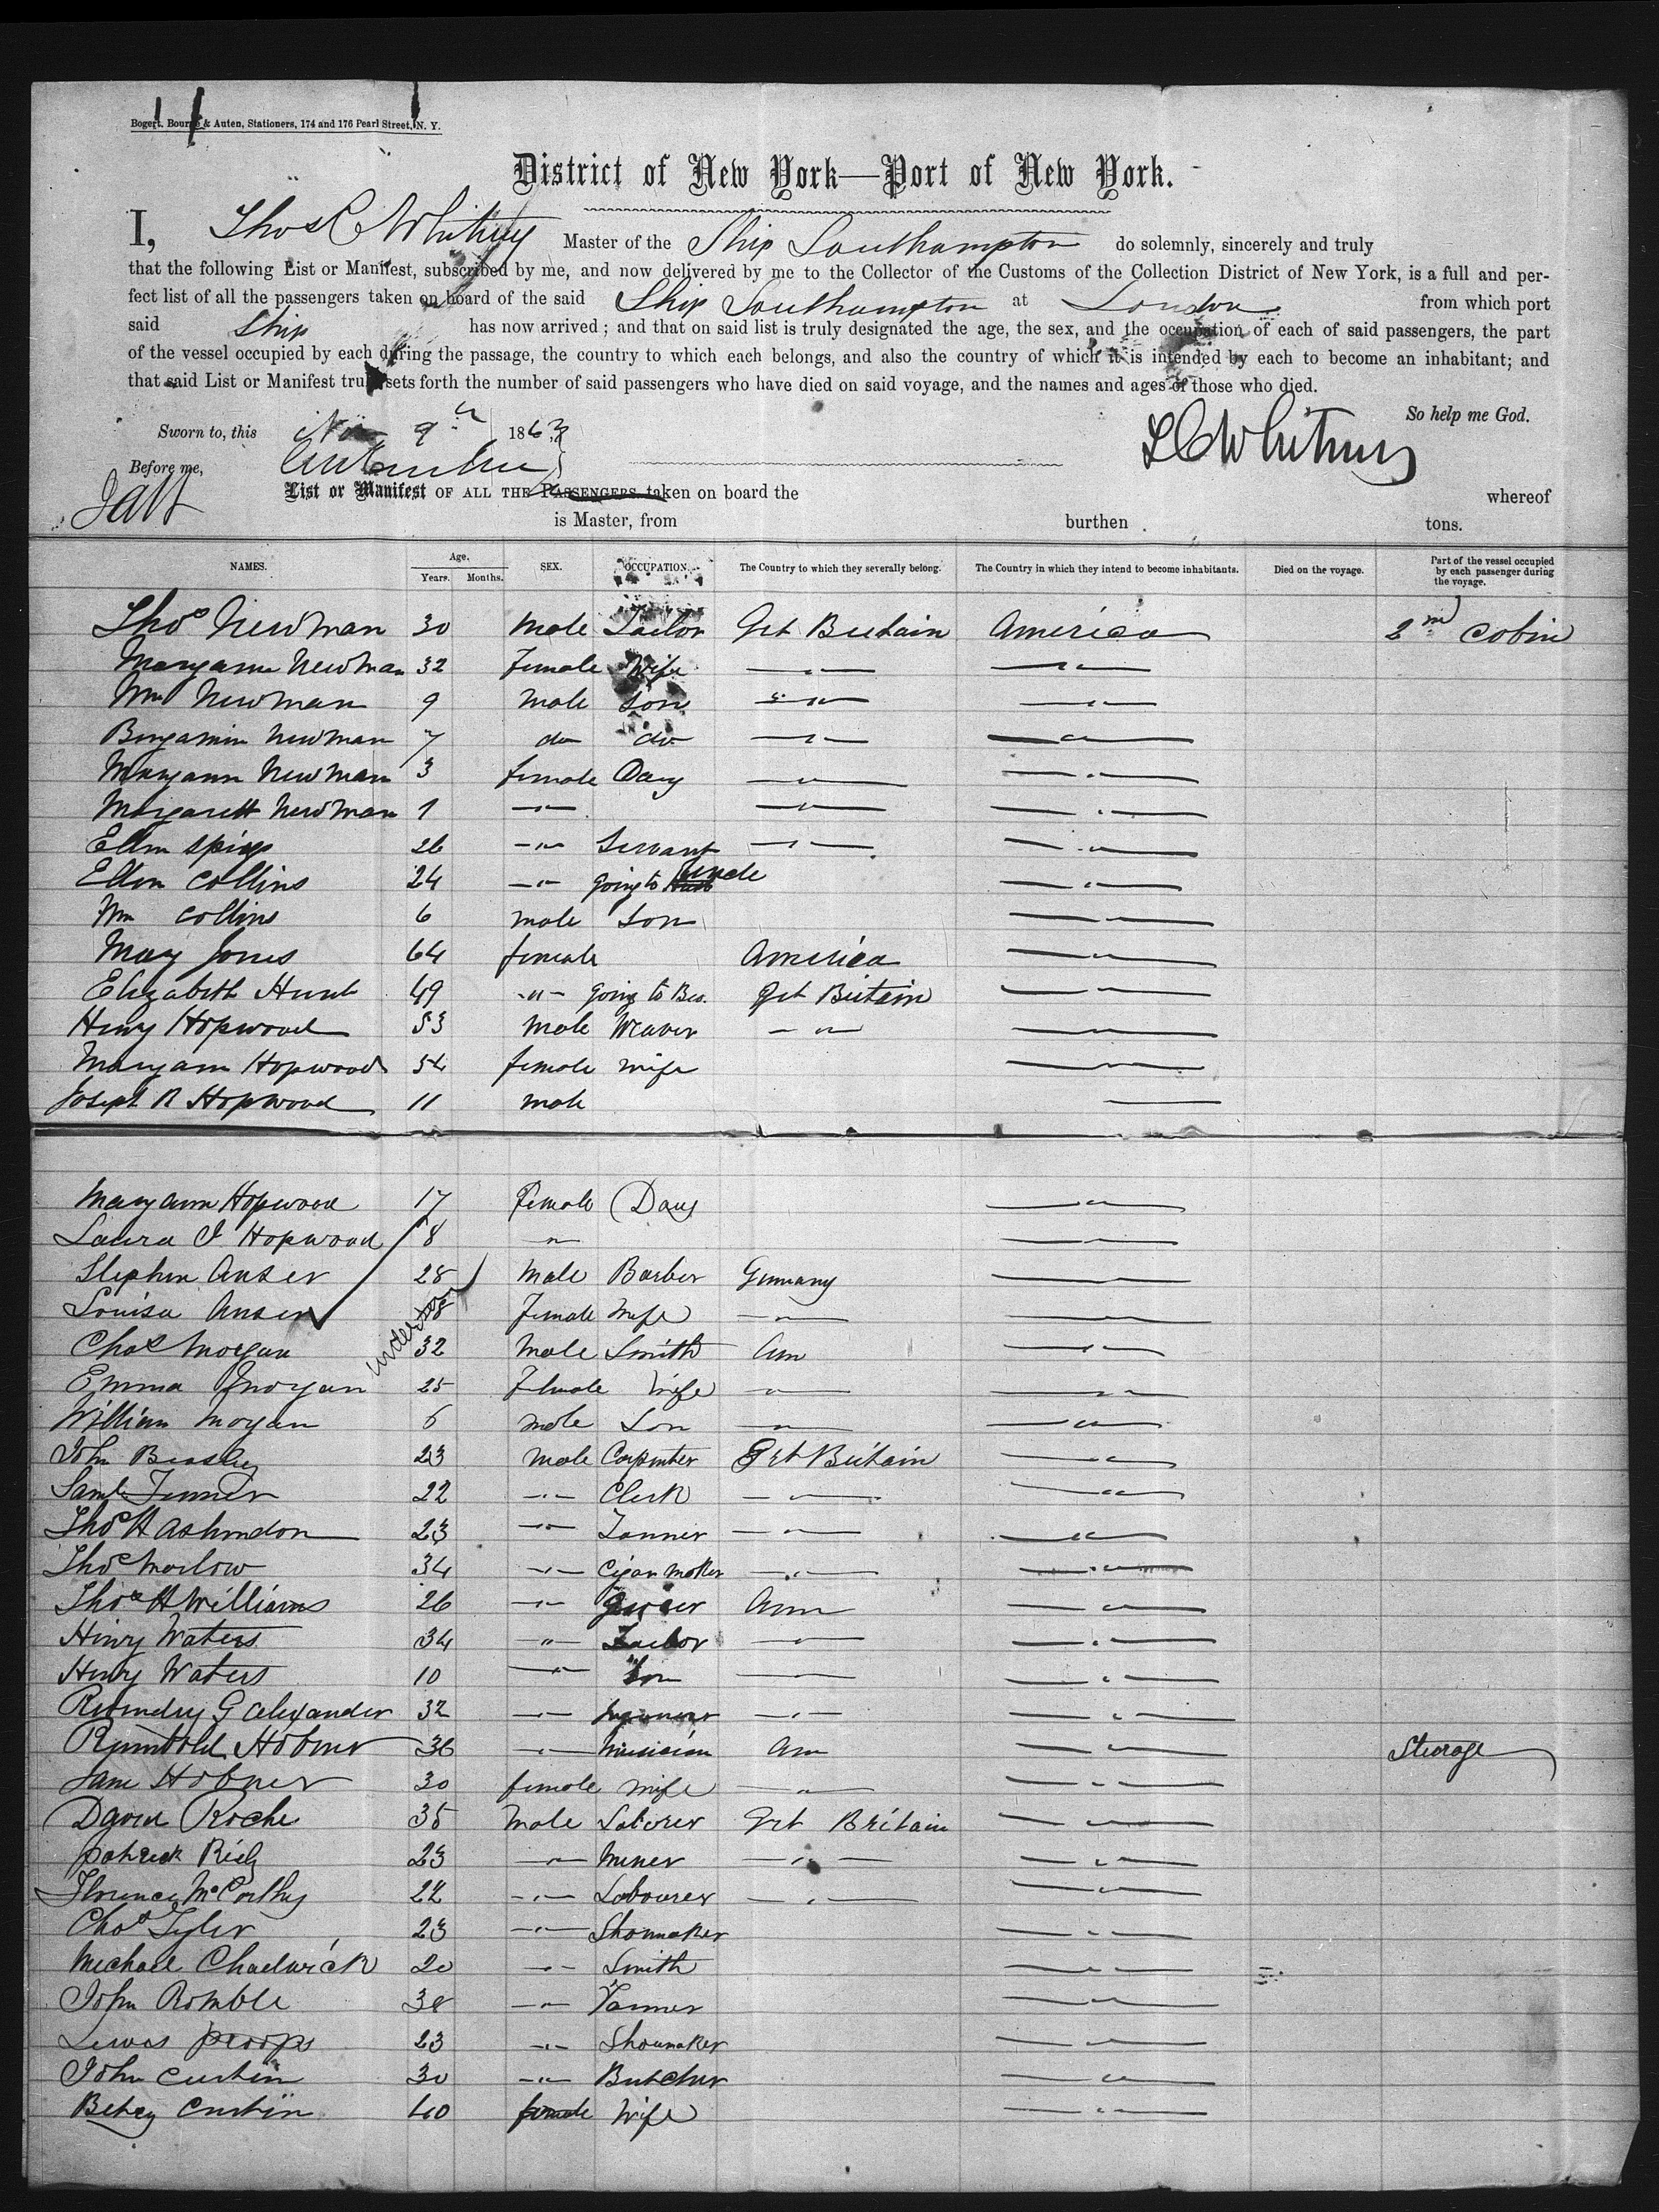 Bogert, Bourne & Auten, Stationers, 174 and 176 Pearl Street, N. Y.
District of New York—Port of New York.
I, Thos C Whitney Master of the Ship Southampton do solemnly, sincerely and truly
that the following List or Manifest, subscribed by me, and now delivered by me to the Collector of the Customs of the Collection District of New York, is a full and per-
fect list of all the passengers taken on board of the said Ship Southampton at London from which port
said Ship has now arrived; and that on said list is truly designated the age, the sex, and the occupation of each of said passengers, the part
of the vessel occupied by each during the passage, the country to which each belongs, and also the country of which it is intended by each to become an inhabitant; and
that said List or Manifest truly sets forth the number of said passengers who have died on said voyage, and the names and ages of those who died.
So help me God.
Sworn to, this Nov 9th 1863
T C Whitney
Before me,
List or Manifest OF ALL THE PASSENGERS taken on board the whereof
is Master, from burthen tons.
NAMES. Age. Years. Months. SEX. OCCUPATION. The Country to which they severally belong. The Country in which they intend to become inhabitants. Died on the voyage. Part of the vessel occupied by each passenger during the voyage.
Thos Newman 30 Male Tailor Grt Britain America 2nd Cabin
Maryann Newman 32 Female Wife
Wm Newman 9 Male Son
Benjamin Newman 7 do do
Maryann Newman 3 female Daug
Margarett Newman 1
Ellen Spigs 26 Servant
Ellen Collins 24 going to uncle
Wm Collins 6 male Son
Mary Jones 64 female America
Elizabeth Hunt 49 going to Bro. Grt Britain
Henry Hopwood 53 Male Weaver
Maryann Hopwood 54 female wife
Joseph R Hopwood 11 male
Maryann Hopwood 17 Female Daug
Laura J Hopwood 8
Stephen Anser 28 Male Barber Germany
Louisa Anser 28 Female Wife
Chas Morgan 32 Male Smith Am
Emma Morgan 25 Female Wife
William Morgan 6 male Son
John Beasley 23 Male Carpenter Grt Britain
Saml 22 Clerk
Thos H Ashmdon 23 Tanner
Thos Marlow 34 Cigar Maker
Thos H Williams 26 Am
Henry Waters 34 Tailor
Henry Waters 10 Son
G Alexander 32
Hobner 36 Musician Am Steerage
Jane Hobner 30 female wife
David Roche 35 Male Laborer Grt Britain
Patrick 23 Miner
Florence McCarthy 22 Labourer
Chas Tyler 23 Shoemaker
Michael Chadwick 20 Smith
John Romble 38 Farmer
Lewis Proops 23 Shoemaker
John Curtin 30 Butcher
Betsy Curtin 40 female Wife